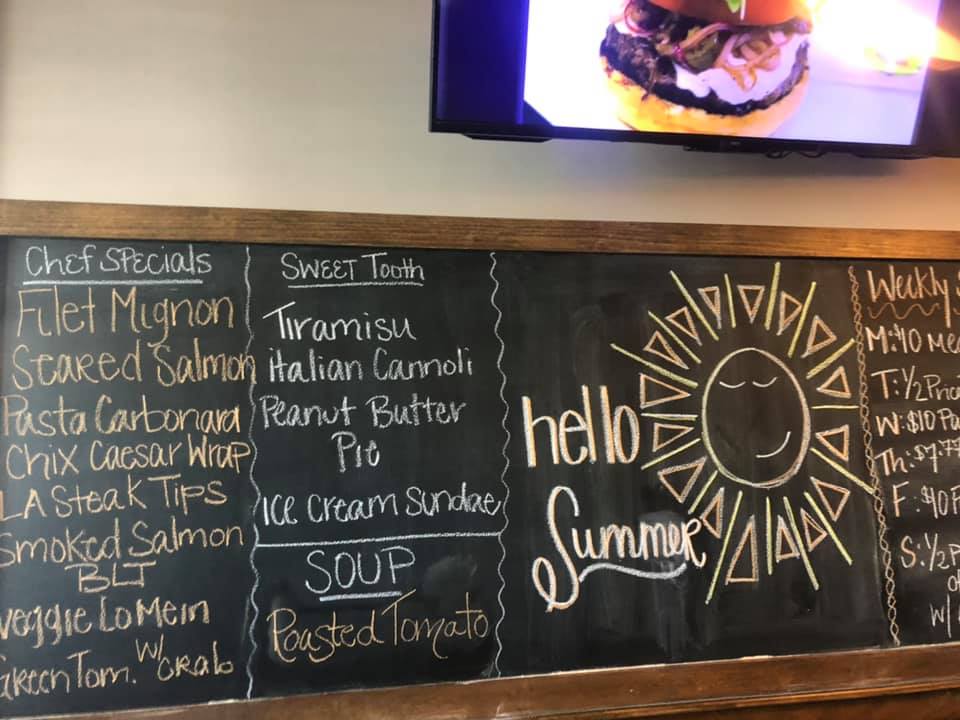 Chef Specials
Filet Mignon
Seared Salmon
Pasta Carbonara
Chix Caesar Wrap
LA Steak Tips
Smoked Salmon
BLT
Veggie Lo Mein
Green Tom. w/ crab
Sweet Tooth
Tiramisu
Italian Cannoli
Peanut Butter
Pie
Ice Cream Sundae
SOUP
Roasted Tomato
hello
Summer
Weekly
M: $10
T: 1/2
W: $10
Th: $7.77
F: $10
S: 1/2
w/